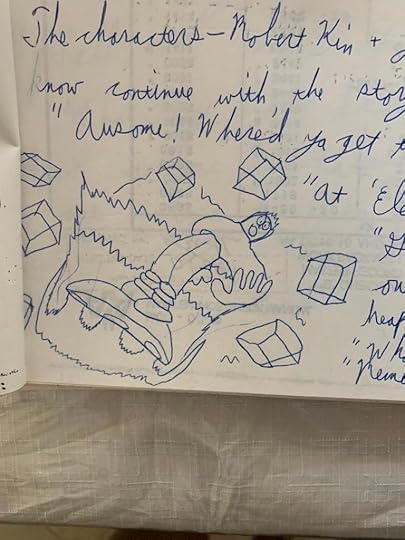 The characters - Robert Kin +
know continue with the story
"Ausome! Where'd ya get
"At 'Ele
on
heap
"Wh